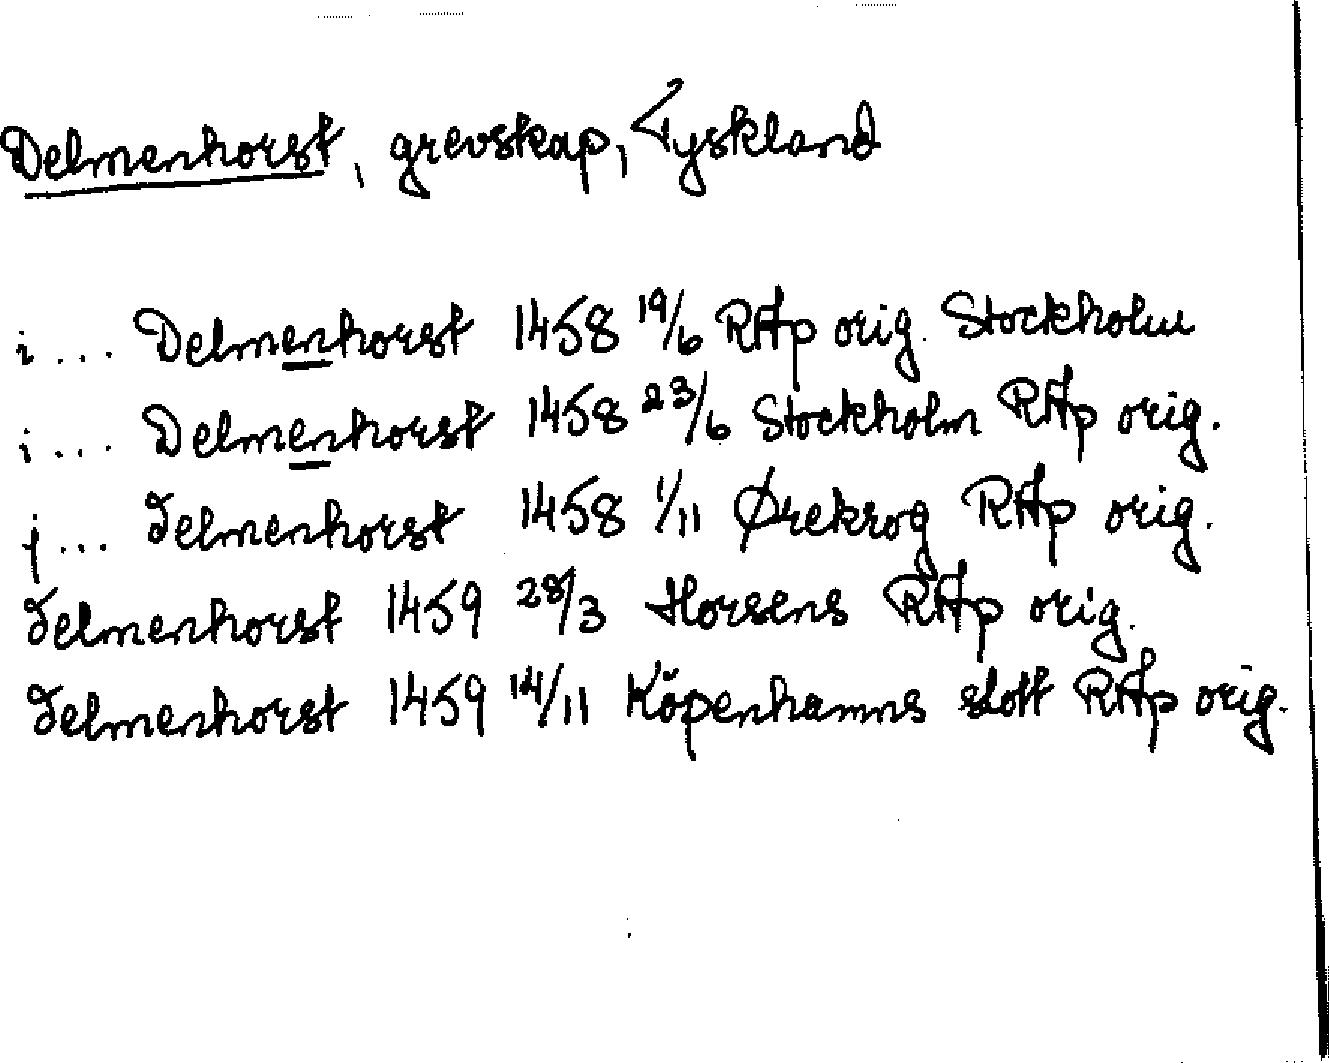 Delmenhorst, grevskap, Tyskland
i ... Delmenhorst 1458 19/6 RAp orig. Stockholm
i ... Delmenhorst 1458 23/6 Stockholm RAp orig.
j ... delmenhorst 1458 1/11 Ørekrog RAp orig.
delmenhorst 1459 28/3 Horsens RAp orig.
delmenhorst 1459 14/11 Köpenhamns slott RAp orig.